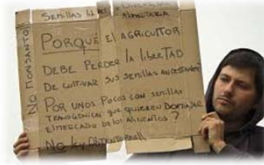 SEMILLAS
NO MONSANTO
PORQUÉ EL AGRICULTOR
DEBE PERDER LA LIBERTAD
DE CULTIVAR SUS SEMILLAS ANCESTRALES
POR UNOS POCOS CON SEMILLAS
TRANSGENICAS QUE QUIEREN DOMINAR
EL MERCADO DE LOS ALIMENTOS?
NO LEY